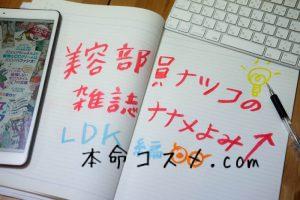 美容部員ナツコの
雑誌ナナメよみ↑
LDK編
本命コスメ.com